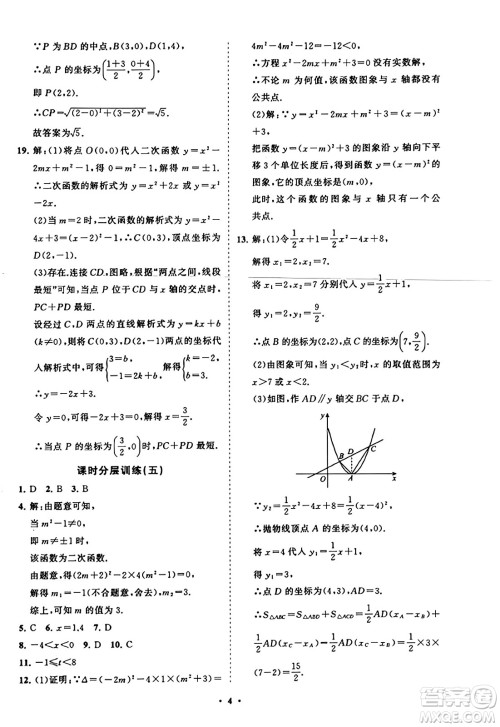 ∵P为BD的中点,B(3,0),
∴点 P 的坐标为(\frac{1+3}{2},\frac{0+4}{2}),
即 P(2,2).
∴CP=\sqrt{(2-0)²+(3-2)²}=\sqrt{5}.
故答案为\sqrt{5}.
19. 解:(1)将点 O(0,0)代入二次函数 y=x²-
2mx+m²-1,解得 m=±1.
∴二次函数的解析式为 y=x²+2x 或 y=
x²-2x.
(2)当 m=2 时,二次函数的解析式为 y=x²-
4x+3=(x-2)²-1.
∴C(0,3),顶点 D 的坐标为(2,-1).
(3)存在,图略,根据“两点之间,线段
最短”可知,当 P 为 CD 与 x 轴的交点时,
PC+PD 最短.
设经过 C,D 两点的直线解析式为 y=kx+b
(k≠0),将 C(0,3),D(2,-1)两点的坐标
代入解析式可得{3=b, -1=2k+b, 解得{k=-2, b=3.
∴y=-2x+3.
令 y=0,可得-2x+3=0,解得 x=\frac{3}{2}.
∴当点 P 的坐标为(\frac{3}{2},0)时,PC+PD最短.
课时分层训练(五)
1. D 2. B 3. D
4. 解:由题意可知,
当 m²-1≠0,即 m≠±1 时,
该函数为二次函数.
由题意,得(2m)²-4(m²-1)=4≠0.
∴m=-1(不合题意,舍去)或 m=1(不合题意,舍去).
综上,可知 m≠±1.
5. C 6. x>4 7. D
8. -4<x<0 9. D 10. D
11. -1≤t<8
12. (1)证明:∵Δ=(-2m)²-4×1×(m²+3)=
4m²-4m²-12=-12<0,
∴方程 x²-2mx+m²+3=0 没有实数解.
∴不论 m 为何值,该函数图象与 x 轴没有
公共点.
(2)解:y=x²-2mx+m²+3=(x-m)²+3,
把函数 y=(x-m)²+3 的图象沿 y 轴向下平
移 3 个单位长度后,得到函数 y=(x-m)²的
图象,它的顶点坐标是(m,0).
故这个函数的图象与 x 轴只有一个公
共点.
13. 解:(1)令\frac{1}{2}x+1=\frac{1}{2}x²-4x+8,
解得 x₁=2,x₂=7.
将 x₁=2,x₂=7 分别代入 y₁=\frac{1}{2}x+1,
得 y₁=2,y₂=\frac{9}{2}.
∴点 B 的坐标为(2,2),点 C 的坐标为(7,\frac{9}{2}).
(2)由图象可知,当 y₁<y₂ 时,x 的取值范围为
x>7 或 x<2.
(3)如图,作 AD∥y 轴交 BC 于点 D,
y
C
B
D
O
A
x
∵y₂=\frac{1}{2}x²-4x+8=\frac{1}{2}(x-4)²,
∴抛物线顶点 A 的坐标为(4,0).
将 x=4 代入 y₁=\frac{1}{2}x+1,得 y₁=3.
∴点 D 的坐标为(4,3),AD=3.
∴S△ABC=S△ABD+S△ACD=\frac{1}{2}AD·(x_D-x_B)+
\frac{1}{2}AD(x_C-x_D)=\frac{1}{2}×3×(4-2+7-4)=\frac{1}{2}×3×
(7-2)=\frac{15}{2}.
· 4 ·